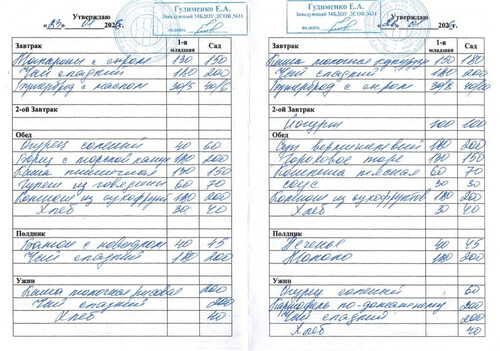 Утверждаю
Гудименко Е.А.
Заведующий МБДОУ ДСОВ №31
Завтрак 1-я младшая Сад
Макароны с сыром 130 150
Чай сладкий 180 200
Бутерброд с маслом 30/5 40/6
2-ой Завтрак
Обед
Огурец соленый 40 60
Борщ с морской капус 180 200
Каша пшеничная 130 150
Гуляш из говядины 60 70
Компот из сухофрукт 180 200
Хлеб 30 40
Полдник
Батон с повидлом 40 45
Чай сладкий 180 200
Ужин
Каша молочная рисовая 200
Чай сладкий 200
Хлеб 40
Гудименко Е.А.
Заведующий МБДОУ ДСОВ №31
Утверждаю
Завтрак 1-я младшая Сад
Каша молочная 150 180
Чай сладкий 180 200
Бутерброд с сыром
2-ой Завтрак
Йогурт 100 100
Обед
Суп вермишелевый 180 200
Гороховое пюре 130 150
Котлета мясная 60 70
соус 30 30
Компот из сухофруктов 180 200
Хлеб 30 40
Полдник
Печенье 40 45
Молоко 180 200
Ужин
Огурец соленый 60
Картофель по-домашнему 200
Чай сладкий 200
Хлеб 40